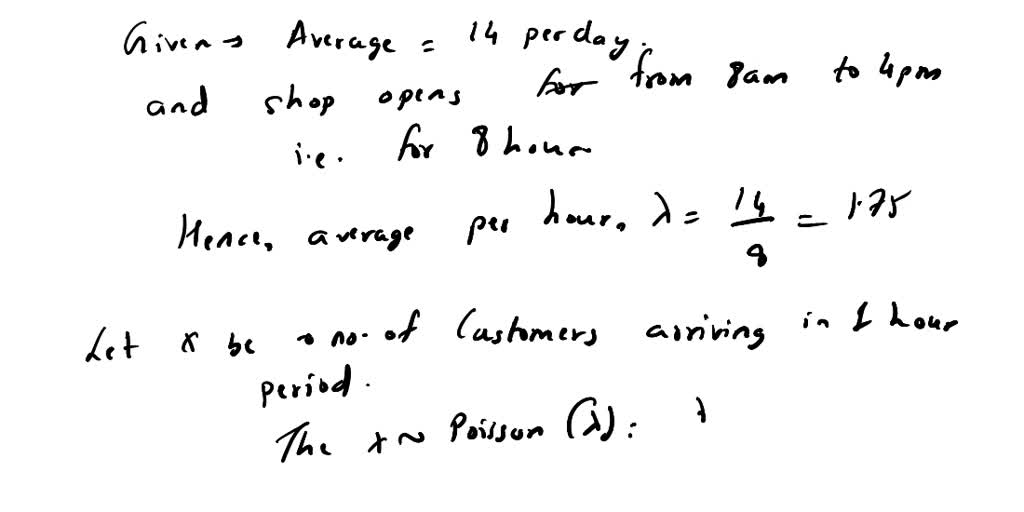 Given → Average = 14 per day.
and shop opens for from 8am to 4pm
i.e. for 8 hour
Hence, average per hour, λ = 14/8 = 1.75
Let x be → no. of Customers arriving in 1 hour
period.
The x ~ Poisson (λ):